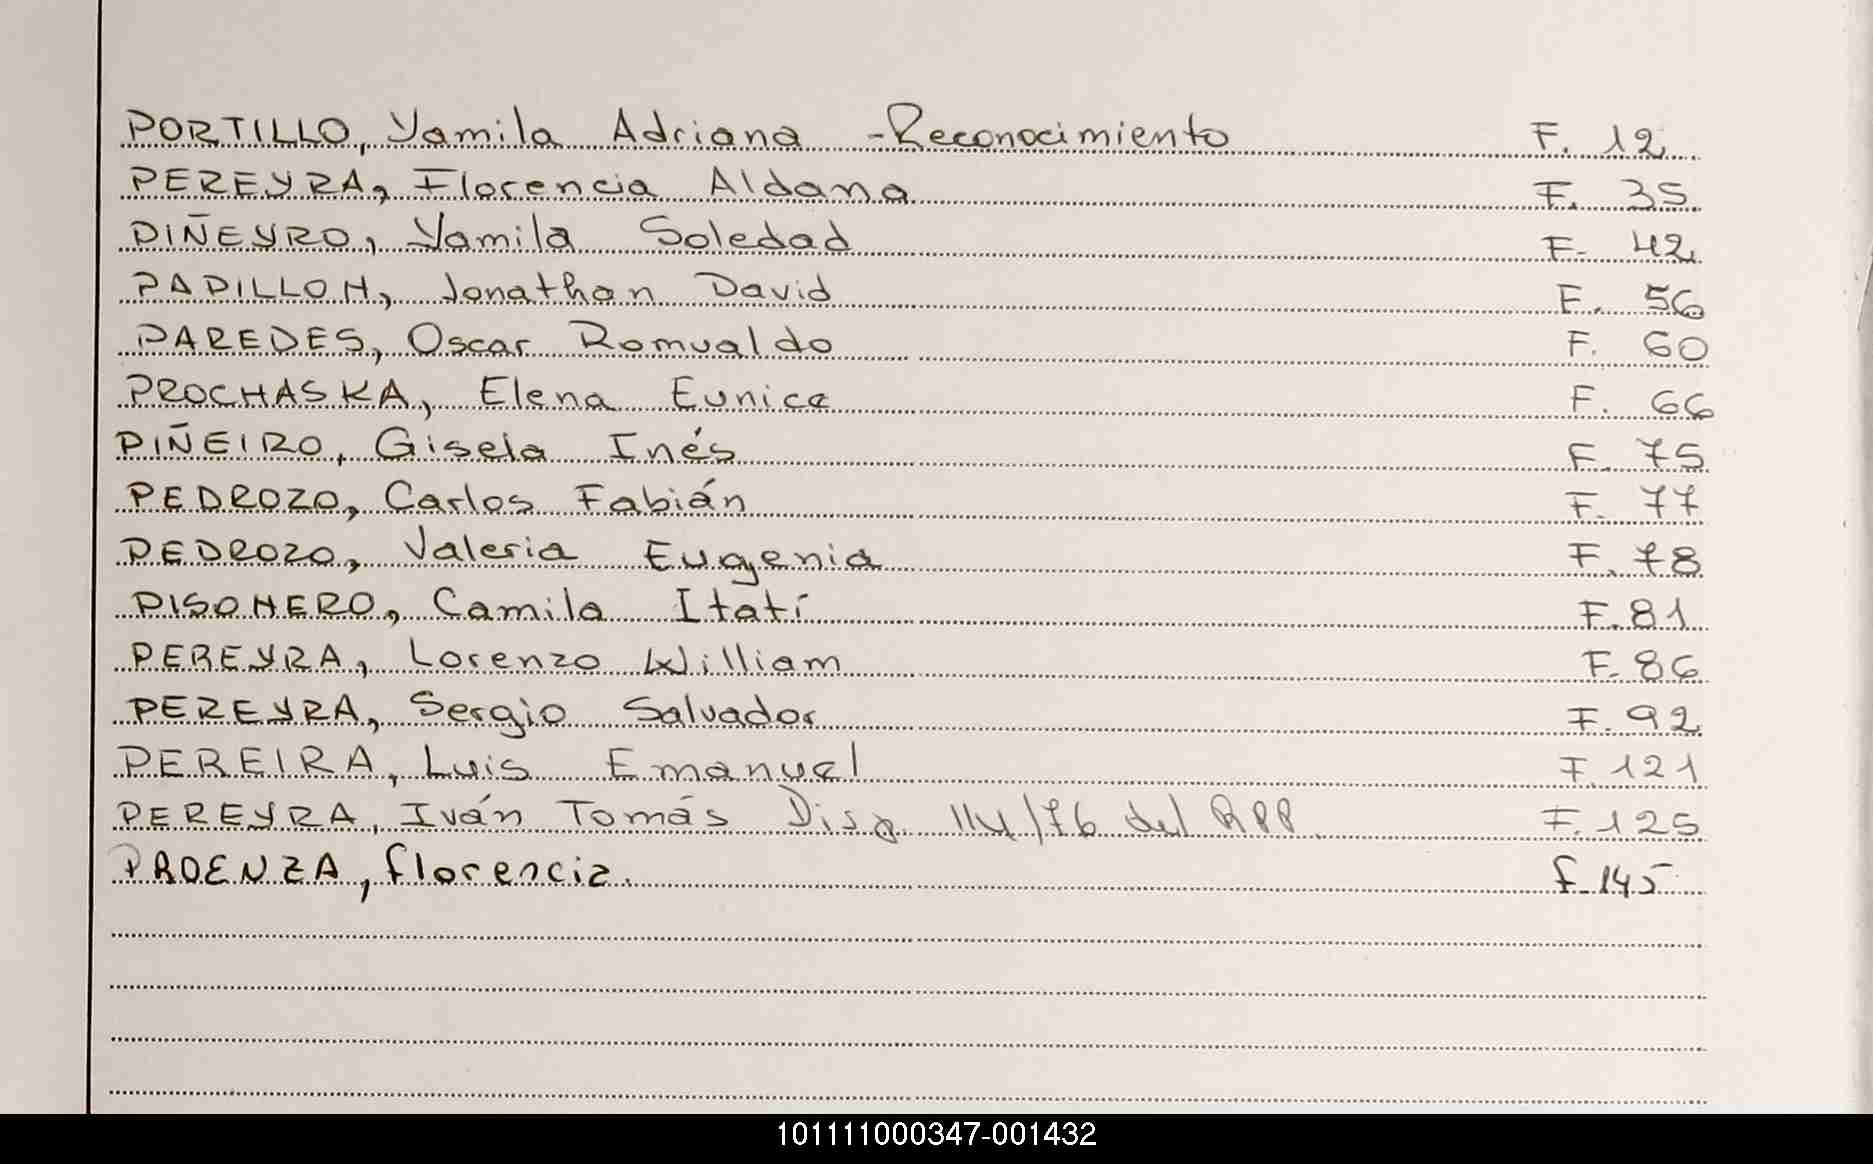 PORTILLO, Yamila Adriana -Reconocimiento F. 12
PEREYRA, Florencia Aldana F. 35
PIÑEYRO, Yamila Soledad F- 42
PAPILLON, Jonathan David F. 56
PAREDES, Oscar Romualdo F. 60
PROCHASKA, Elena Eunice F. 66
PIÑEIRO, Gisela Inés F. 75
PEDROZO, Carlos Fabián F. 77
PEDROZO, Valeria Eugenia F. 78
PISONERO, Camila Itatí F. 81
PEREYRA, Lorenzo William F. 86
PEREYRA, Sergio Salvador F. 92
PEREIRA, Luis Emanuel F. 121
PEREYRA, Iván Tomás Disp. 114/76 del RPP. F. 125
PROENZA, florencia. f- 145
101111000347-001432